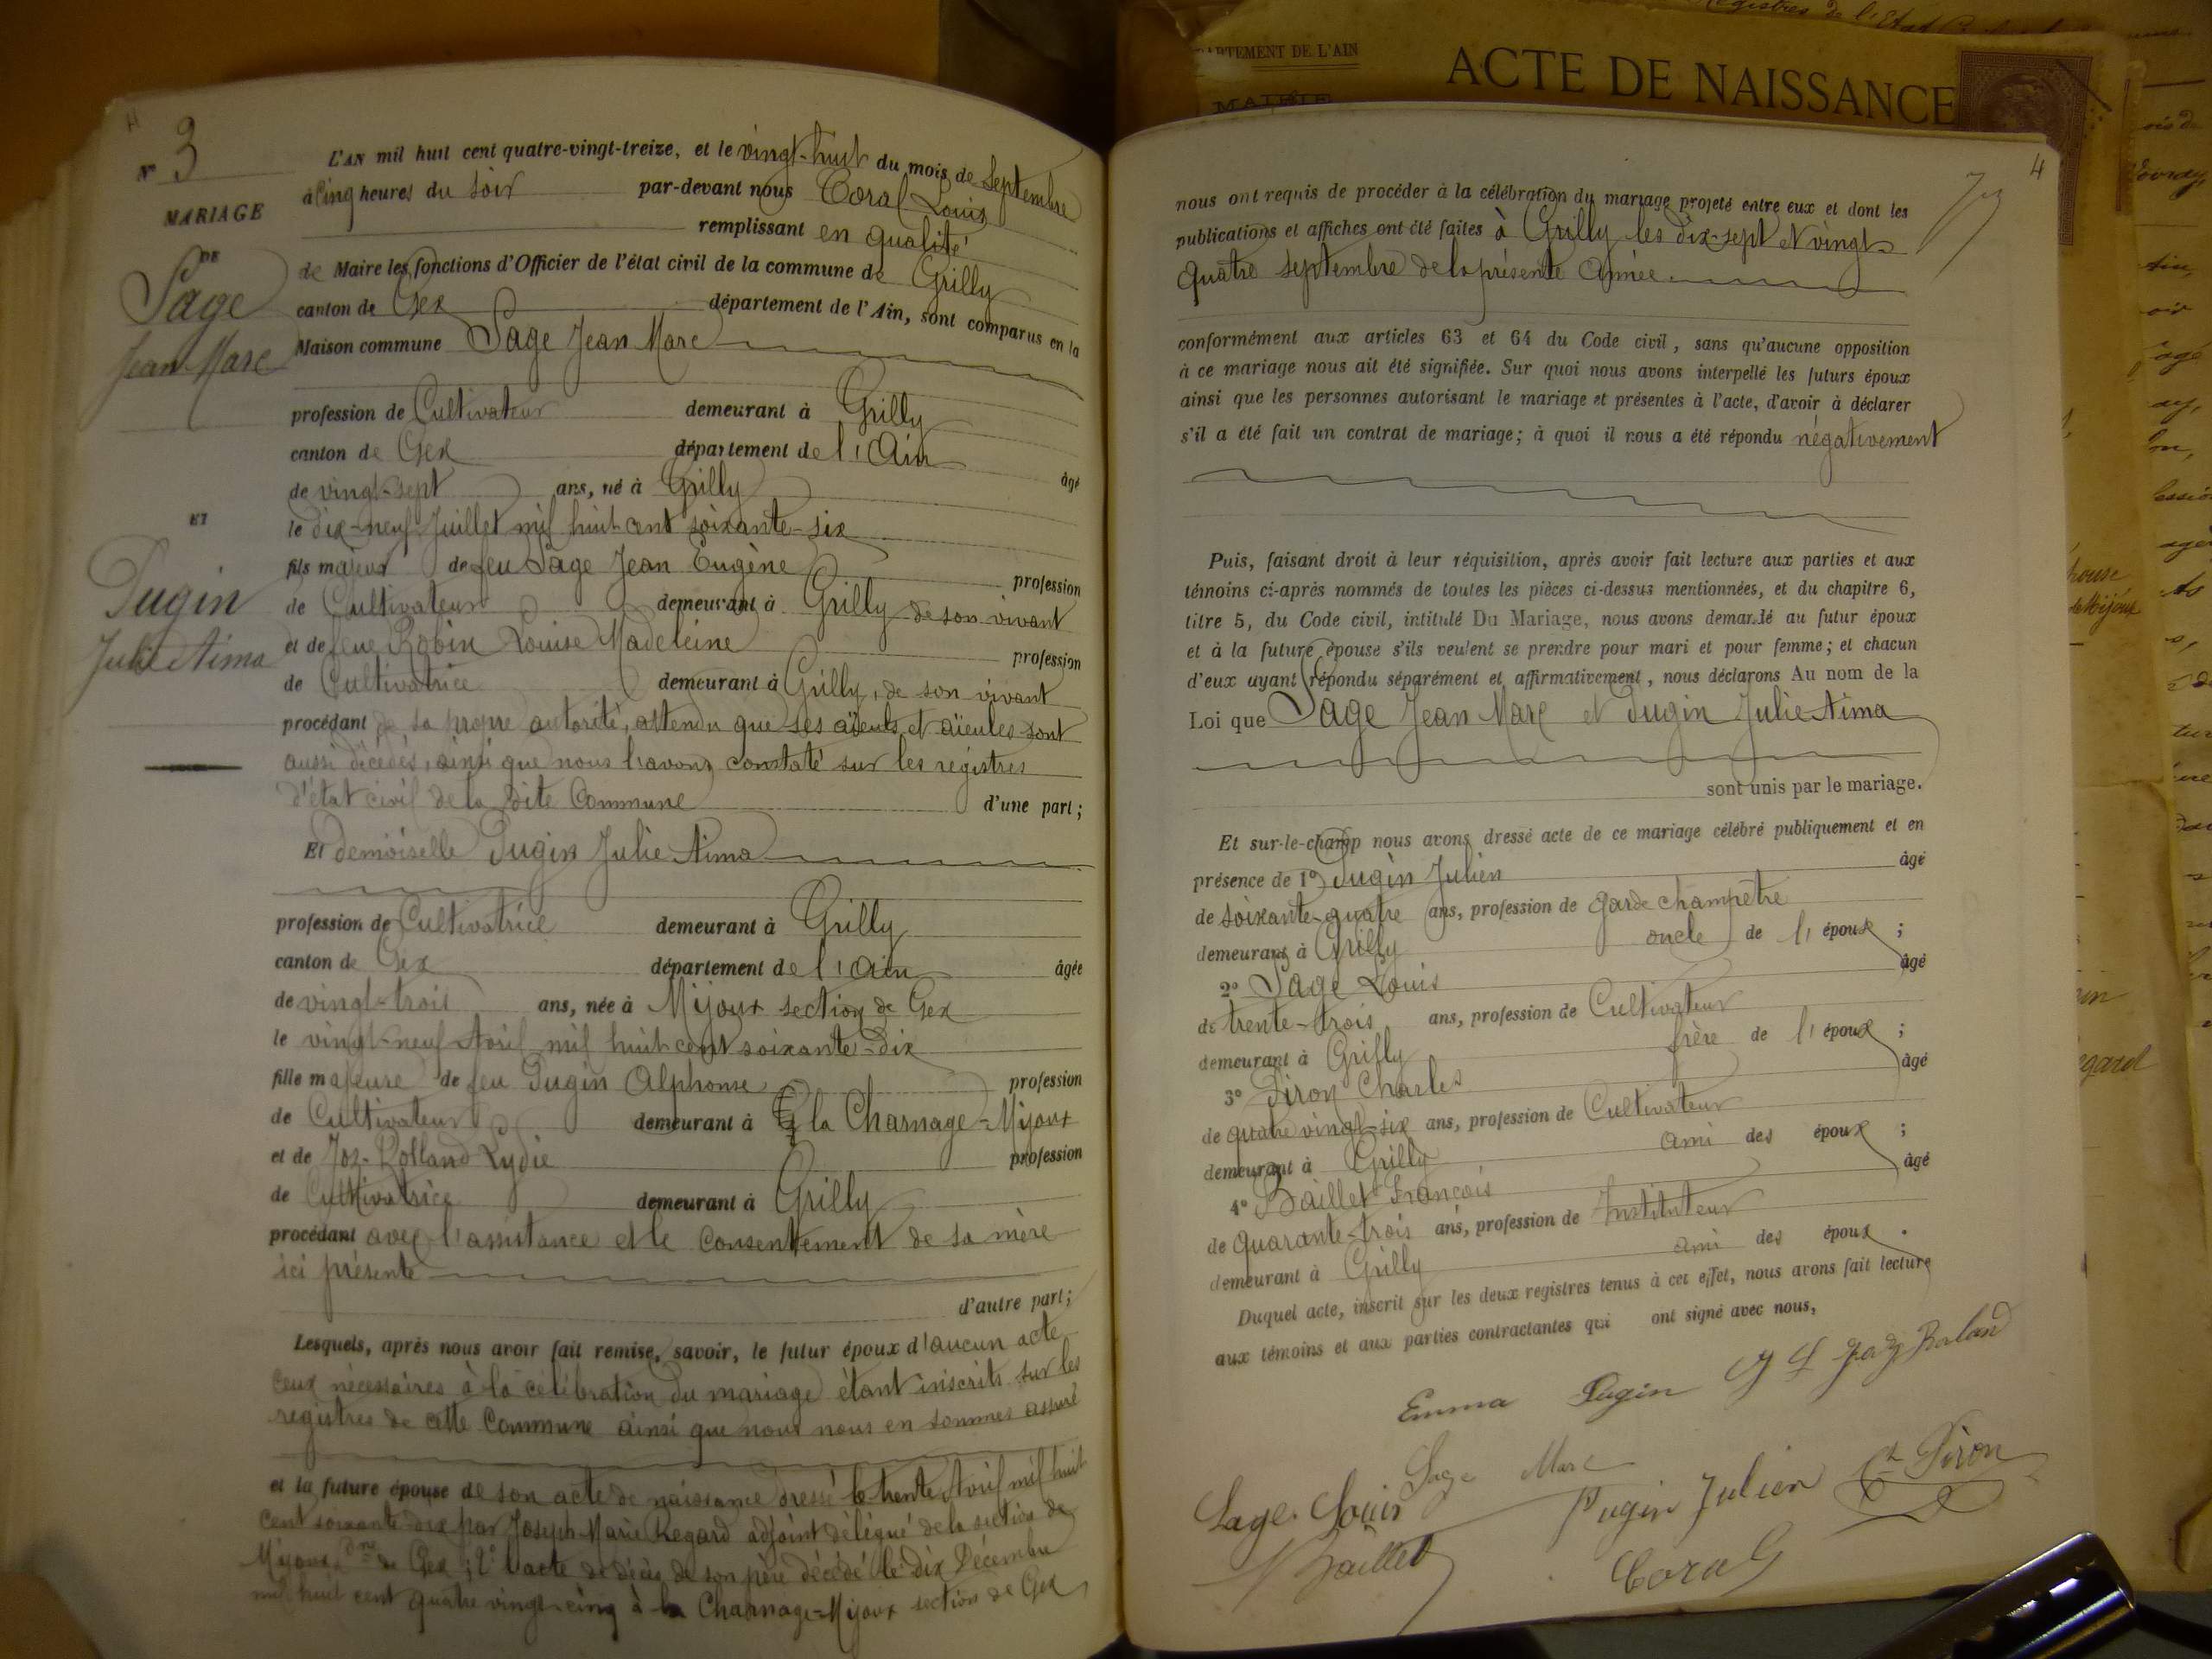 N° 3
MARIAGE
DE
Sage
Jean Marc
ET
Pugin
Julie Aima
L'AN mil huit cent quatre-vingt-treize, et le vingt-huit du mois de Septembre
à cinq heures du soir par-devant nous Coral Louis
remplissant en qualité
de Maire les fonctions d'Officier de l'état civil de la commune de Grilly
canton de Gex département de l'Ain, sont comparus en la
Maison commune Sage Jean Marc
profession de Cultivateur demeurant à Grilly
canton de Gex département de l'Ain
âgé
de vingt-sept ans, né à Grilly
le dix-neuf Juillet mil huit cent soixante-six
fils majeur de feu Sage Jean Eugène
profession
de Cultivateur demeurant à Grilly de son vivant
et de feue Robin Louise Madeleine
profession
de Cultivatrice demeurant à Grilly, de son vivant
procédant de sa propre autorité, attendu que ses aïeuls et aïeules sont
aussi décédés, ainsi que nous l'avons constaté sur les registres
d'état civil de la dite Commune d'une part;
Et demoiselle Pugin Julie Aima
profession de Cultivatrice demeurant à Grilly
canton de Gex département de l'Ain âgée
de vingt-trois ans, née à Mijoux section de Gex
le vingt-neuf Avril mil huit cent soixante-dix
fille majeure de feu Pugin Alphonse profession
de Cultivateur demeurant à la Charnage-Mijoux
et de Joz-Rolland Lydie profession
de Cultivatrice demeurant à Grilly
procédant avec l'assistance et le consentement de sa mère
ici présente
d'autre part;
Lesquels, après nous avoir fait remise, savoir, le futur époux d'aucun acte
ceux nécessaires à la célébration du mariage étant inscrits sur les
registres de cette Commune ainsi que nous nous en sommes assuré
et la future épouse de son acte de naissance dressé le trente Avril mil huit
cent soixante dix par Joseph Marie Regard adjoint délégué de la section de
Mijoux, de Gex; 2° l'acte de décès de son père décédé le dix Décembre
mil huit cent quatre vingt-cinq à la Charnage-Mijoux section de Gex
DÉPARTEMENT DE L'AIN
ACTE DE NAISSANCE
MAIRIE
4
nous ont requis de procéder à la célébration du mariage projeté entre eux et dont les
publications et affiches ont été faites à Grilly les dix-sept et vingt
quatre septembre de la présente année.
conformément aux articles 63 et 64 du Code civil, sans qu'aucune opposition
à ce mariage nous ait été signifiée. Sur quoi nous avons interpellé les futurs époux
ainsi que les personnes autorisant le mariage et présentes à l'acte, d'avoir à déclarer
s'il a été fait un contrat de mariage; à quoi il nous a été répondu négativement
Puis, faisant droit à leur réquisition, après avoir fait lecture aux parties et aux
témoins ci-après nommés de toutes les pièces ci-dessus mentionnées, et du chapitre 6,
titre 5, du Code civil, intitulé Du Mariage, nous avons demandé au futur époux
et à la future épouse s'ils veulent se prendre pour mari et pour femme; et chacun
d'eux ayant répondu séparément et affirmativement, nous déclarons Au nom de la
Loi que Sage Jean Marc et Pugin Julie Aima
sont unis par le mariage.
Et sur-le-champ nous avons dressé acte de ce mariage célébré publiquement et en
présence de 1° Pugin Julien âgé
de soixante-quatre ans, profession de garde champêtre
demeurant à Grilly oncle de l'épouse;
2° Sage Louis âgé
de trente-trois ans, profession de Cultivateur
demeurant à Grilly frère de l'époux;
3° Piron Charles âgé
de quatre vingt-six ans, profession de Cultivateur
demeurant à Grilly ami des époux;
4° Baillet François âgé
de quarante-trois ans, profession de Instituteur
demeurant à Grilly ami des époux.
Duquel acte, inscrit sur les deux registres tenus à cet effet, nous avons fait lecture
aux témoins et aux parties contractantes qui ont signé avec nous,
Emma Pugin
Sage Marc
Sage Louis Pugin Julien Ch Piron
Baillet
Coral